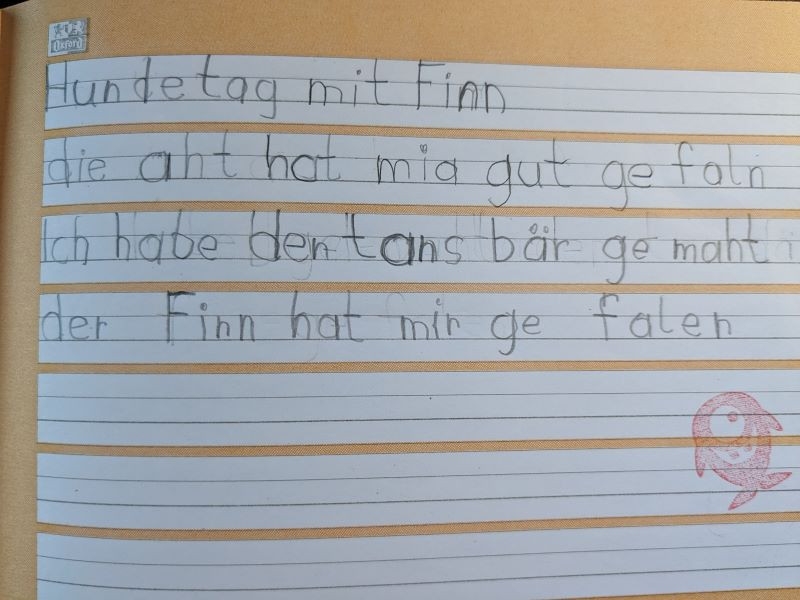 Oxford
Hundetag mit Finn
die aht hat mia gut ge faln
Ich habe den tans bär ge maht
der Finn hat mir ge falen